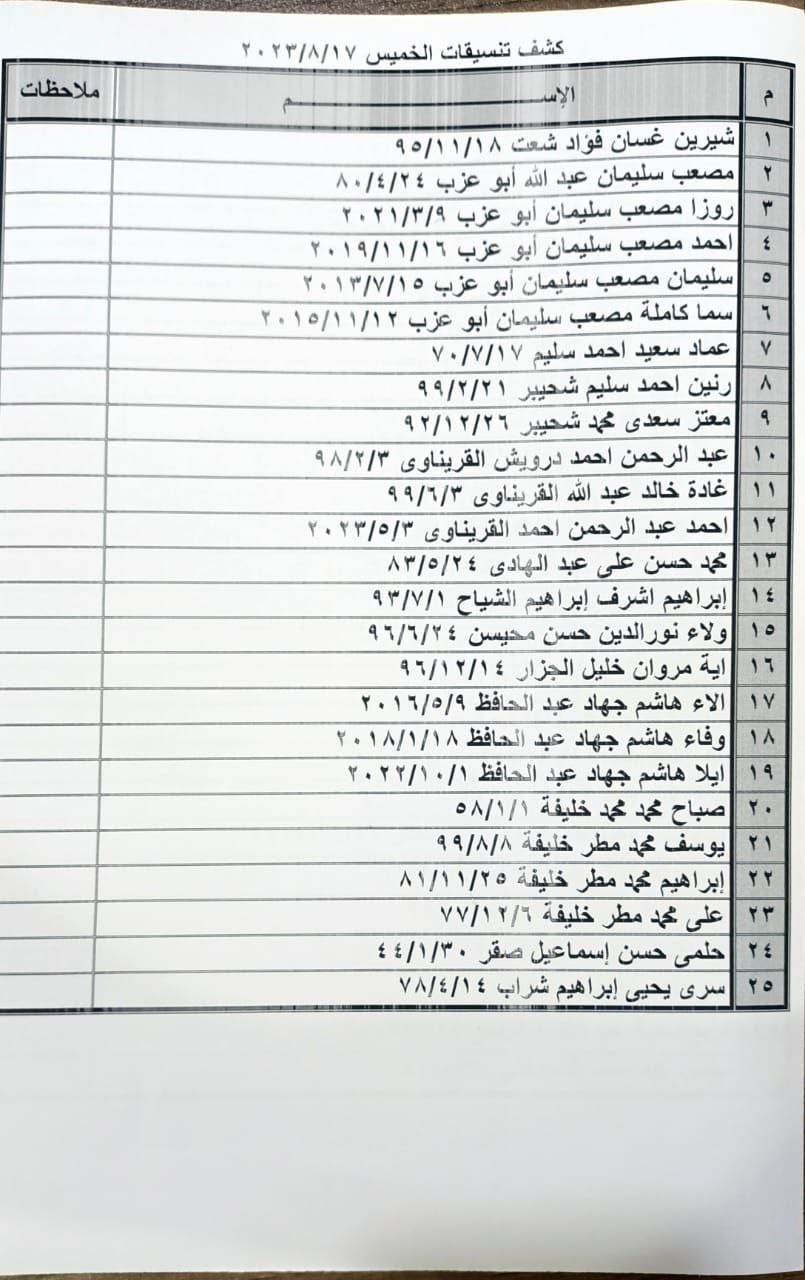 كشف تنسيقات الخميس ٢٠٢٣/٨/١٧
م الإســـــــم ملاحظات
١ شيرين غسان فؤاد شعت ٩٥/١١/١٨
٢ مصعب سليمان عبد الله أبو عزب ٨٠/٤/٢٤
٣ روزا مصعب سليمان أبو عزب ٢٠٢١/٣/٩
٤ احمد مصعب سليمان أبو عزب ٢٠١٩/١١/١٦
٥ سليمان مصعب سليمان أبو عزب ٢٠١٣/٧/١٥
٦ سما كاملة مصعب سليمان أبو عزب ٢٠١٥/١١/١٢
٧ عماد سعيد احمد سليم ٧٠/٧/١٧
٨ رنين احمد سليم شحيبر ٩٩/٢/٢١
٩ معتز سعدى محمد شحيبر ٩٢/١٢/٢٦
١٠ عبد الرحمن احمد درويش القريناوى ٩٨/٢/٣
١١ غادة خالد عبد الله القريناوى ٩٩/٦/٣
١٢ احمد عبد الرحمن احمد القريناوى ٢٠٢٣/٥/٣
١٣ محمد حسن على عبد الهادى ٨٣/٥/٢٤
١٤ إبراهيم اشرف إبراهيم الشياح ٩٣/٧/١
١٥ ولاء نورالدين حسن محيسن ٩٦/٦/٢٤
١٦ اية مروان خليل الجزار ٩٦/١٢/١٤
١٧ الاء هاشم جهاد عبد الحافظ ٢٠١٦/٥/٩
١٨ وفاء هاشم جهاد عبد الحافظ ٢٠١٨/١/١٨
١٩ ايلا هاشم جهاد عبد الحافظ ٢٠٢٢/١٠/١
٢٠ صباح محمد محمد خليفة ٥٨/١/١
٢١ يوسف محمد مطر خليفة ٩٩/٨/٨
٢٢ إبراهيم محمد مطر خليفة ٨١/١١/٢٥
٢٣ على محمد مطر خليفة ٧٧/١٢/٦
٢٤ حلمى حسن إسماعيل صقر ٤٤/١/٣٠
٢٥ سرى يحيى إبراهيم شراب ٧٨/٤/١٤